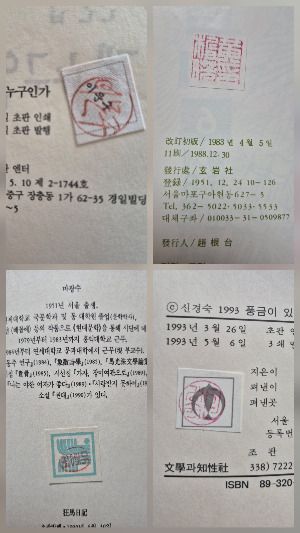 누구인가
초판 인쇄
초판 발행
엔터
5. 10 제 2-1744호
중구 장충동 1가 62-35 경일빌딩
~5
改訂初版 / 1983年 4月 5日
11版 / 1988. 12. 30
發行處 / 玄岩社
登錄 / 1951. 12. 24 10-126
서울마포구아현동627-5
Tel. 362-5022·5033·5533
대체구좌 / 010033-31-0509877
發行人 / 趙根台
마광수
1951년 서울 출생.
대학교 국문과 및 동 대학원 졸업(문학박사).
1979년부터 1983년까지 홍익대학교 근무.
1984년부터 연세대학교 문과대학에서 근무(현 부교수).
소설 『권태』(1990)가 있다.
狂馬日記
ⓒ 신경숙 1993 풍금이 있
1993년 3월 26일 초판
1993년 5월 6일 3쇄
지은이
펴낸이
펴낸곳
서울
등록번
文學과知性社 338) 7222
ISBN 89-320